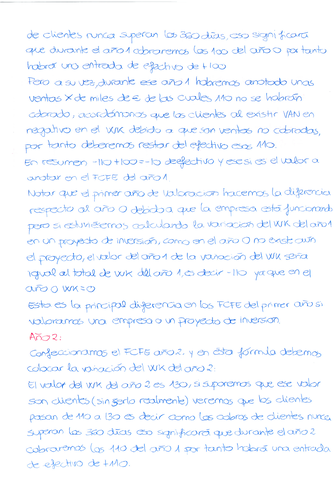 de clientes nunca superan los 360 días, eso significará
que durante el año 1 cobraremos los 100 del año 0 por tanto
habrá una entrada de efectivo de +100
Pero a su vez, durante ese año 1 habremos anotado unas
ventas X de miles de € de las cuales 110 no se habrán
cobrado, acordémonos que los clientes al existir VAN en
negativo en el WK debido a que son ventas no cobradas,
por tanto deberemos restar del efectivo esas 110.
En resumen -110 + 100 = -10 de efectivo y ese si es el valor a
anotar en el FCFE del año 1
Notar que el primer año de valoración hacemos la diferencia
respecto al año 0 debido a que la empresa está funcionando
pero si estuviésemos calculando la variación del WK del año 1
en un proyecto de inversión, como en el año 0 no existe aún
el proyecto, el valor del año 1 de la variación del WK sería
igual al total de WK del año 1, es decir -110 ya que en el
año 0 WK=0
Esta es la principal diferencia en los FCFE del primer año si
valoramos una empresa o un proyecto de inversión.
Año 2:
Confeccionamos el FCFE año 2. y en esta fórmula debemos
colocar la variación del WK del año 2.
El valor del WK del año 2 es 130, si suponemos que ese valor
son clientes (sin serlo realmente) veremos que los clientes
pasan de 110 a 130 es decir como los cobros de clientes nunca
superan los 360 días eso significará que durante el año 2
cobraremos los 110 del año 1 por tanto habrá una entrada
de efectivo de +110.